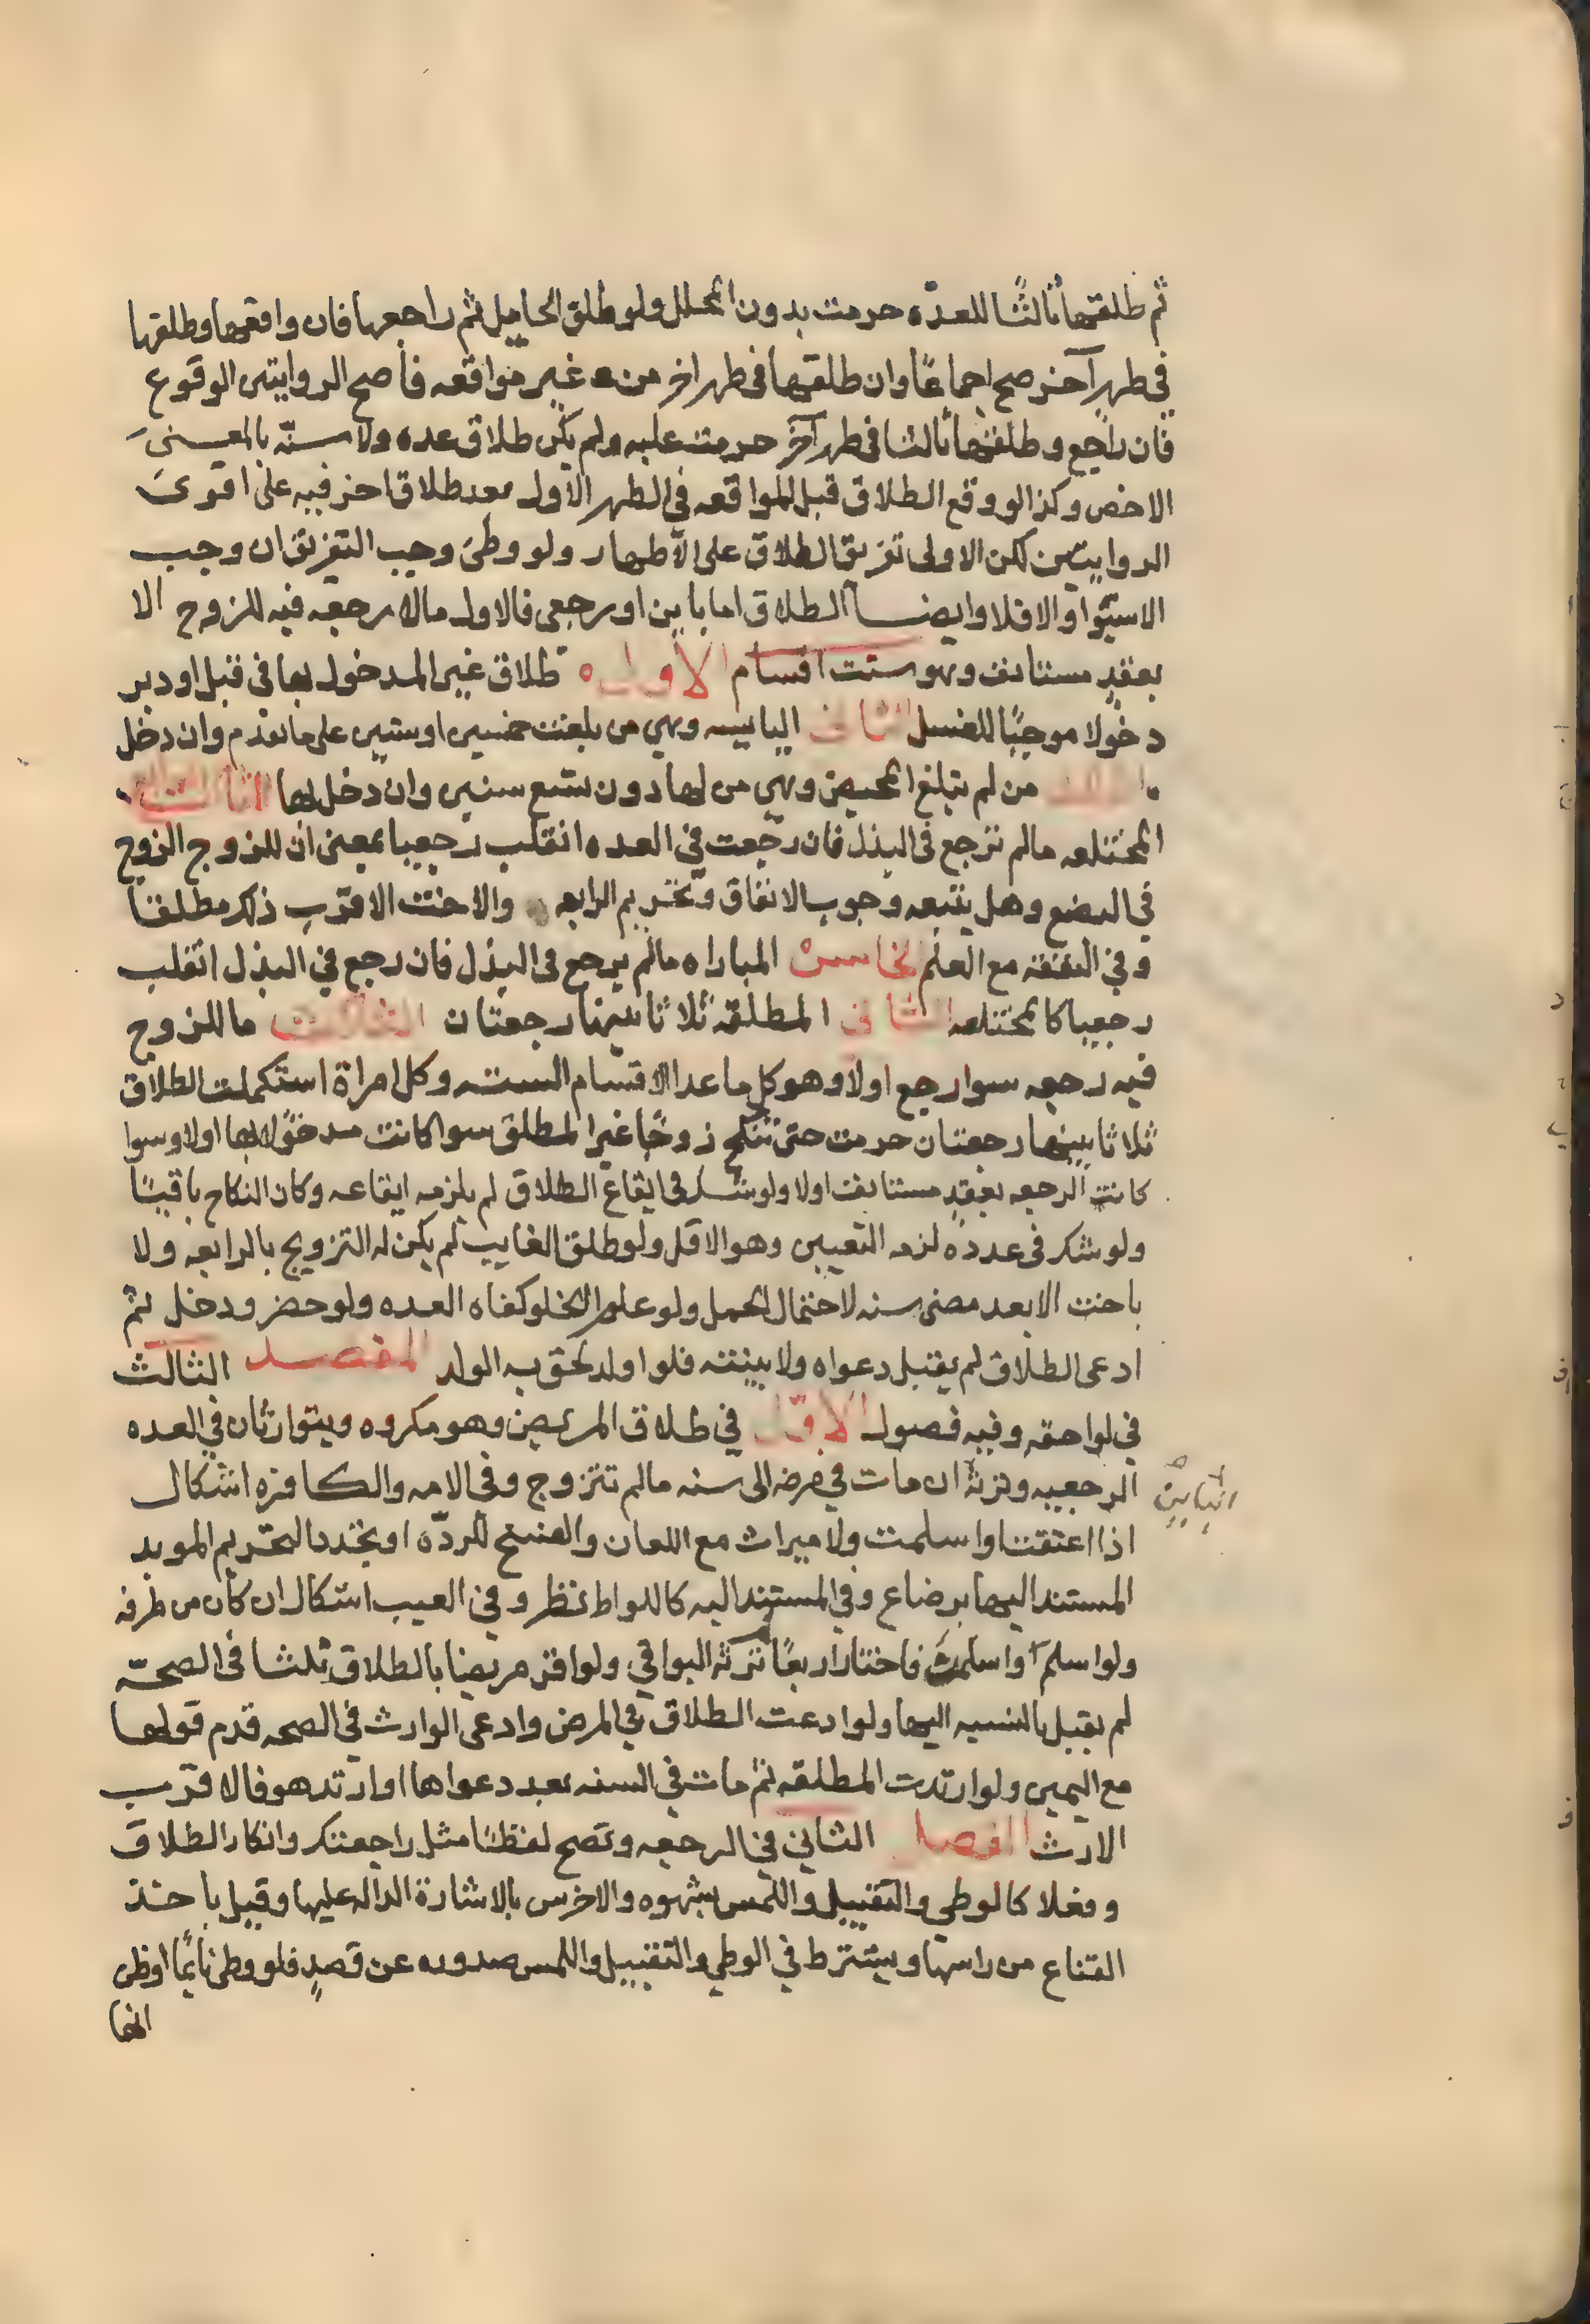 ثم طلقها ثالثًا للعدّه حرمت بدون المحلل ولو طلق الحامل ثم راجعها فان واقعها وطلقها
في طهر آخر صح اجماعًا وان طلقها في طهر اخر من غير مواقعه فاصح الروايتين الوقوع
فان راجع وطلقها ثالثا في طهر آخر حرمت عليه ولم يكن طلاق عده ولا سنّه بالمعنى
الاخص وكذا لو وقع الطلاق قبل المواقعه في الطهر الاول بعد طلاق اخر فيه على اقوى
الروايتين لكن الاولى تفريق الطلاق على الاطهار ولو وطئ وجب التفريق ان وجب
الاستبرا والا فلا وايضا الطلاق اما باين او رجعى فالاول مالا رجعه فيه للزوج الا
بعقدٍ مستانف وهو ست اقسام الاول طلاق غير المدخول بها فى قبل او دبر
دخولا موجبًا للغسل الثانى اليايسه وهي من بلغت خمسين او ستين على ما تقدم وان دخل
الثالث من لم تبلغ المحيض وهي من لها دون تسع سنين وان دخل بها
المختلعه مالم ترجع فى البذل فان رجعت في العده انقلب رجعيا بمعنى ان للزوج الزوج
في البضع وهل يتبعه وجوب الانفاق وتحريم الرابعه والاخت الاقرب ذلك مطلقا
وفي النفقه مع العلم الخامس المباراه مالم يرجع فى البذل فان رجع في البذل انقلب
رجعيا كالمختلعه الثانى المطلقه ثلاثا بينها رجعتان الثالث ما للزوج
فيه رجعه سوا رجع اولا وهو كل ما عدا الاقسام السته وكل امراة استكملت الطلاق
ثلاثا بينها رجعتان حرمت حتى تنكح زوجًا غير المطلق سوا كانت مدخولا بها اولا وسوا
كانت الرجعه بعقدٍ مستانف اولا ولو شك فى ايقاع الطلاق لم يلزمه ايقاعه وكان النكاح باقيًا
ولو شك فى عدده لزمه اليقين وهو الاقل ولو طلق الغايب لم يكن له التزويج بالرابعه ولا
باخت الا بعد مضى سنه لاحتمال الحمل ولو علم الخلو كفاه العده ولو حضر ودخل ثم
ادعى الطلاق لم يقبل دعواه ولا بينته فلو اولد لحق به الولد المقصد الثالث
في لواحقه وفيه فصول الاوّل في طلاق المريض وهو مكروه ويتوارثان في العده
الرجعيه وترثه ان مات في مرضه الى سنه مالم تتزوج وفى الامه والكافره اشكال
الباين
اذا اعتقت او اسلمت ولا ميراث مع اللعان والفسخ للردّه او تجدد التحريم الموبد
المستند اليها برضاع وفي المستند اليه كاللواط نظر وفي العيب اشكال ان كان من طرفه
ولو اسلم واسلمن فاختار اربعًا لم ترثه البواقي ولو اقر مريضا بالطلاق ثلثا فى الصحّه
لم يقبل بالنسبه اليها ولو ادعت الطلاق في المرض وادعى الوارث في الصحه قدم قولها
مع اليمين ولو ارتدت المطلقه ثم مات في السنه بعد دعواها او ارتد هو فالاقرب
الارث الفصل الثاني في الرجعه وتصح لفظًا مثل راجعتك وانكار الطلاق
وفعلا كالوطي والتقبيل واللمس بشهوه والاخرس بالاشارة الداله عليها وقيل باخذ
القناع من راسها ويشترط في الوطي والتقبيل واللمس صدوره عن قصدٍ فلو وطى نايمًا اوظن
انها